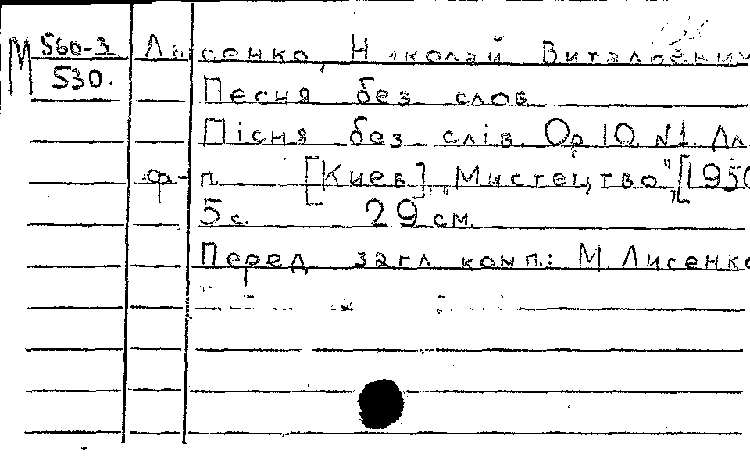 М 560-3
530.
Лысенко, Николай Виталиевич
Песня без слов
Пісня без слів. Op 10. N1. Дл
ф-п. [Киев], "Мистецтво", [1950
5 с. 29 см.
Перед загл комп.: М. Лисенко